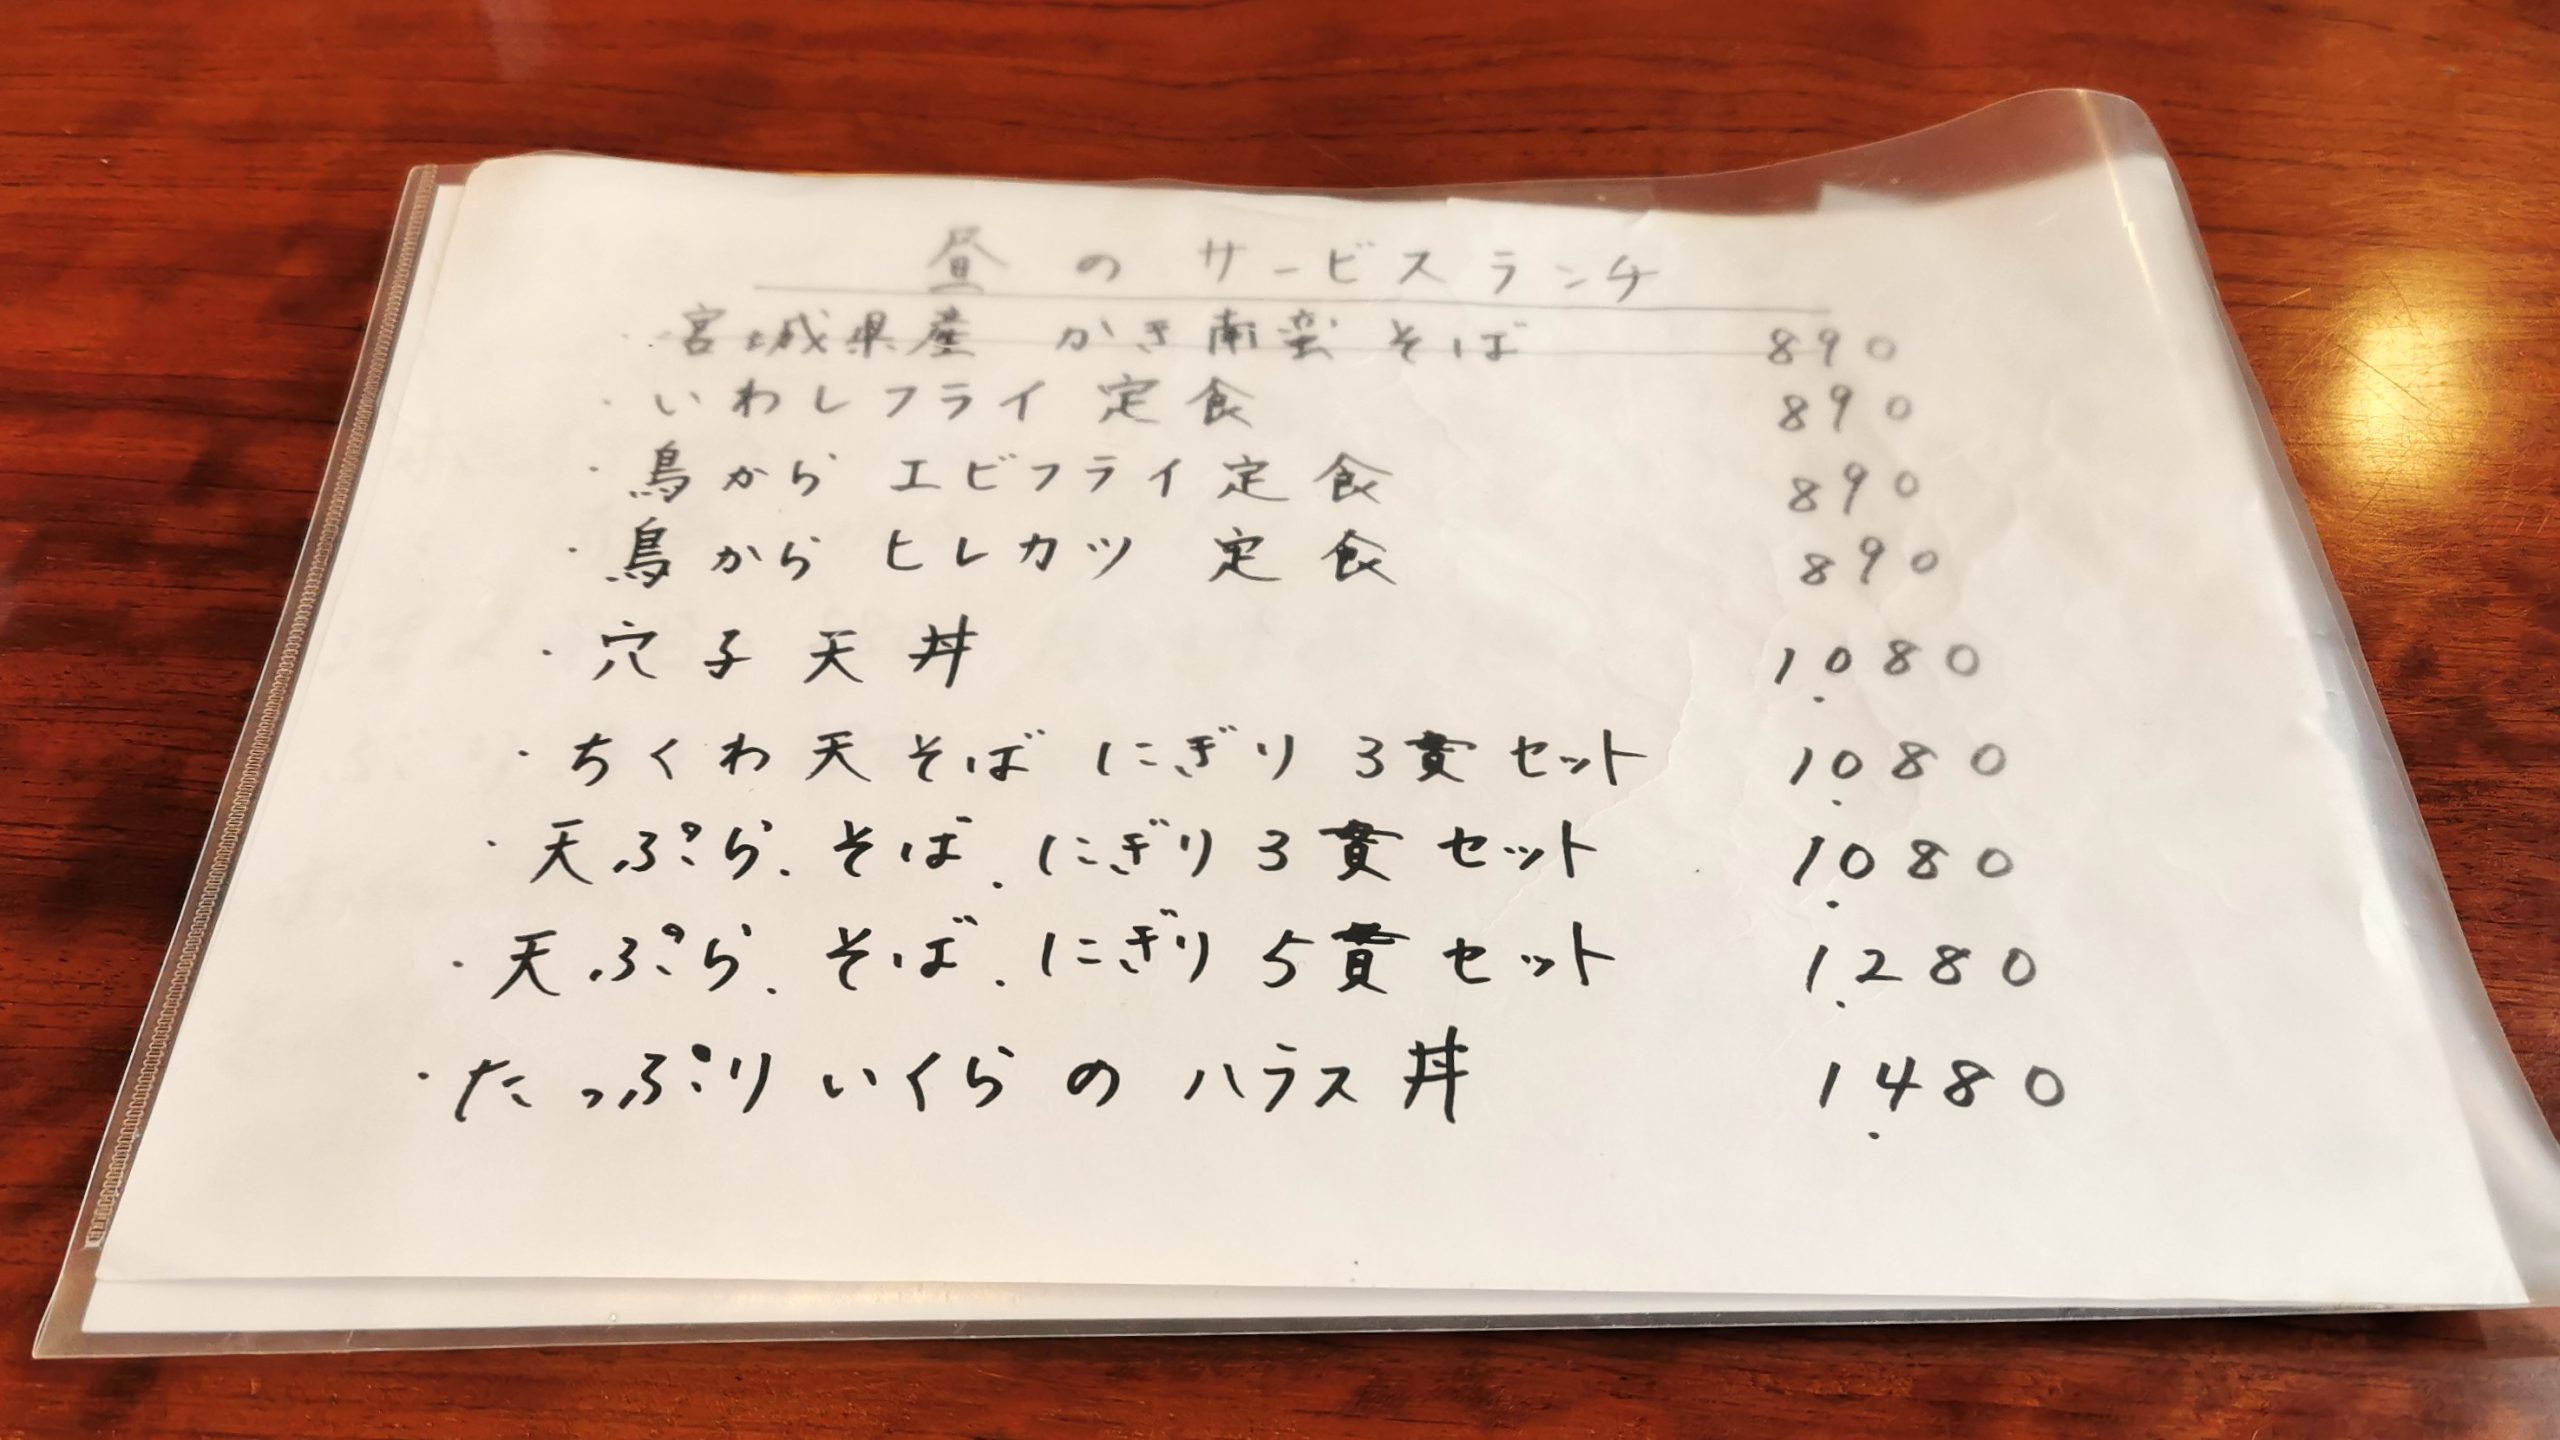 昼のサービスランチ
・宮城県産 かき南蛮そば 890
・いわしフライ定食 890
・鳥から エビフライ定食 890
・鳥から ヒレカツ定食 890
・穴子天丼 1.080
・ちくわ天そば にぎり3貫セット 1.080
・天ぷら、そば、にぎり3貫セット 1.080
・天ぷら、そば、にぎり5貫セット 1.280
・たっぷりいくらのハラス丼 1.480